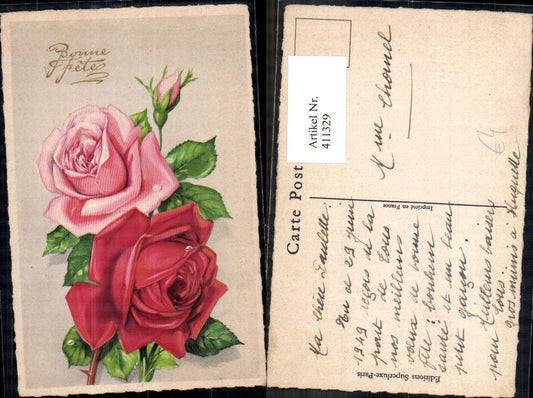 Bonne
fête
Artikel Nr.
411329
Carte Post
Imprimé en France
Editions Superluxe-Paris
Mme Chamel
Ma chère Paulette
En ce 29 juin
1949 reçois de la
part de tous
nos meilleurs
voeux de bonne
fête : bonheur
santé et un beau
petit garçon.
Meilleurs baisers
pour tous.
gros mimis à Huguette